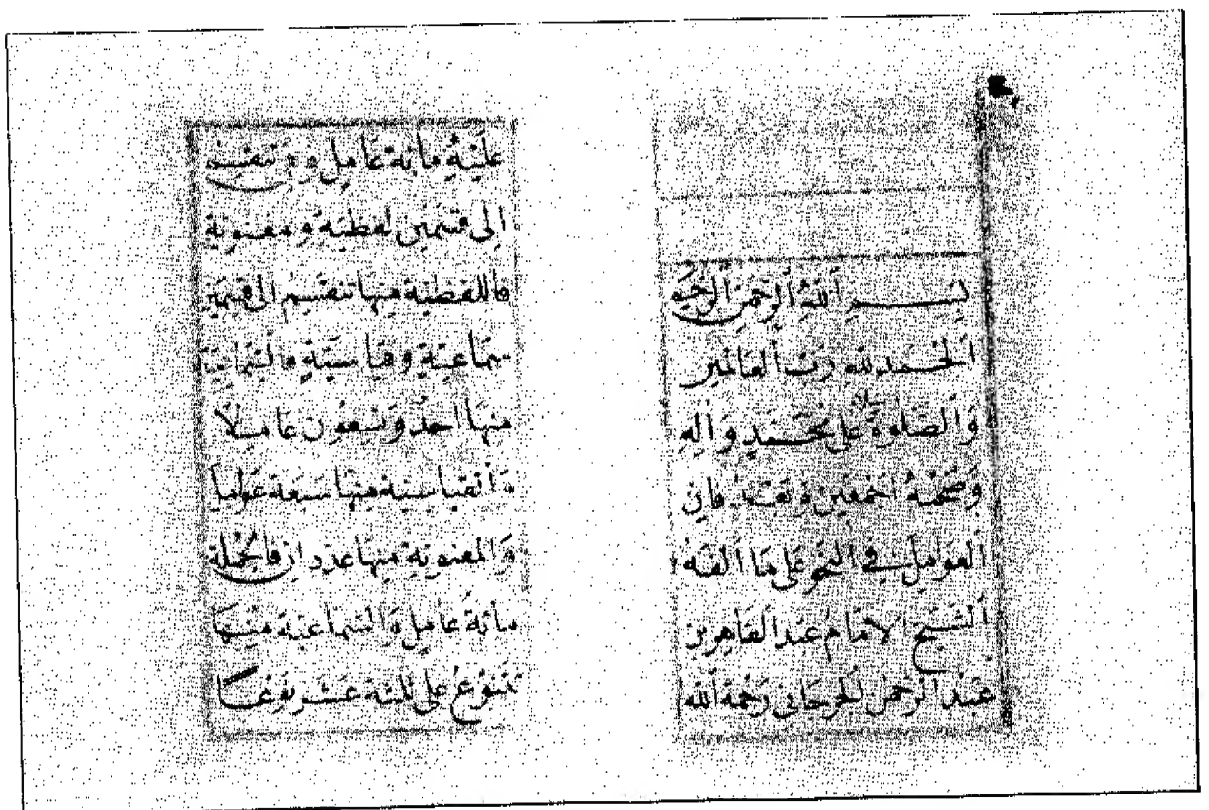 بسم الله الرحمن الرحيم
الحمد لله رب العالمين
والصلوة علی محمد واله
وصحبه اجمعين وبعد فان
العوامل في النحو علی ما الفه
الشيخ الامام عبد القاهر بن
عبد الرحمن الجرجاني رحمة الله
عليه مائة عامل و تنقسم
الی قسمين لفظية ومعنوية
فاللفظية منها تنقسم الی قسمين
سماعية وقياسية فالسماعية
منها احد وتسعون عاملا
والقياسية منها سبعة عوامل
والمعنوية منها عددان فالجملة
مائة عامل والسماعية منها
تتنوع علی ثلثة عشر نوعا